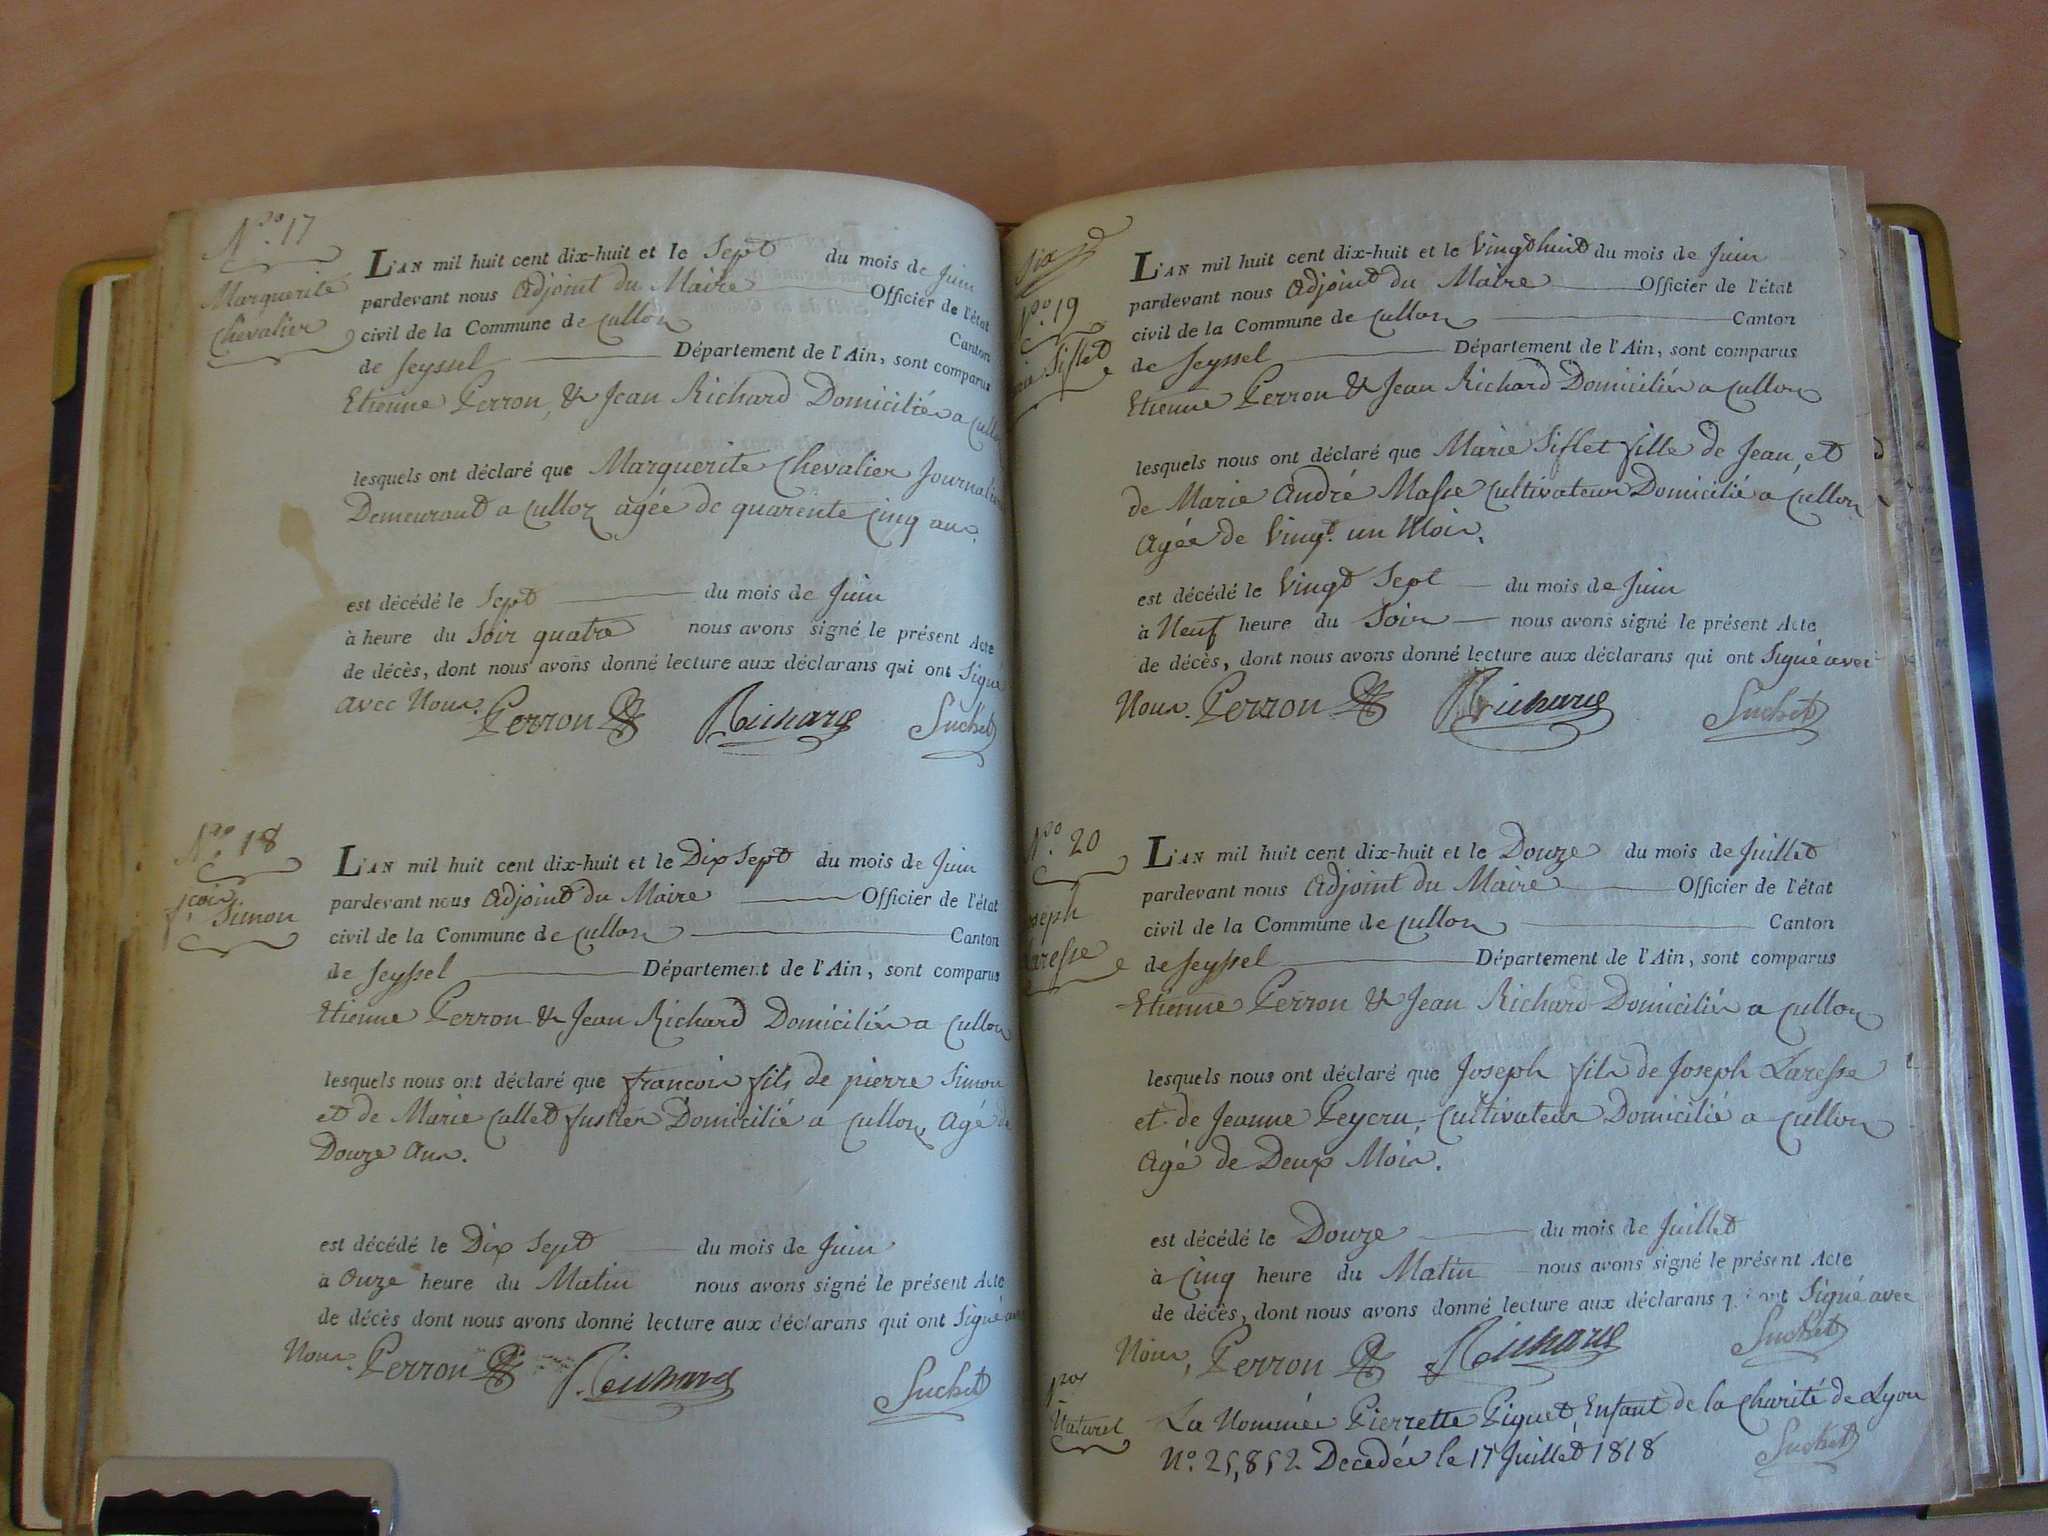 N.º 17
Marguerite
Chevalier
L'AN mil huit cent dix-huit et le Sept du mois de Juin
pardevant nous Adjoint du Maire Officier de l'état
civil de la Commune de Culloz Canton
de Seyssel Département de l'Ain, sont comparus
Etienne Perron, & Jean Richard Domiciliés a Culloz
lesquels ont déclaré que Marguerite Chevalier Journalière
Demeurant a Culloz agée de quarente Cinq ans.
est décédé le Sept du mois de Juin
à heure du Soir quatre nous avons signé le présent Acte
de décès, dont nous avons donné lecture aux déclarans qui ont Signé
avec Nous. Perron Richard Suchet
N.º 18
fçois
Simon
L'AN mil huit cent dix-huit et le Dix Sept du mois de Juin
pardevant nous Adjoint du Maire Officier de l'état
civil de la Commune de Culloz Canton
de Seyssel Département de l'Ain, sont comparus
Etienne Perron & Jean Richard Domiciliés a Culloz
lesquels nous ont déclaré que francois fils de pierre Simon
et de Marie Callet fustier Domicilié a Culloz, Agé de
Douze Ans.
est décédé le Dix Sept du mois de Juin
à Onze heure du Matin nous avons signé le présent Acte
de décès dont nous avons donné lecture aux déclarans qui ont Signé avec
Nous. Perron Richard Suchet
N.º 19
Siflet
L'AN mil huit cent dix-huit et le Vingt huit du mois de Juin
pardevant nous Adjoint du Maire Officier de l'état
civil de la Commune de Culloz Canton
de Seyssel Département de l'Ain, sont comparus
Etienne Perron & Jean Richard Domiciliés a Culloz
lesquels nous ont déclaré que Marie Siflet fille de Jean, et
de Marie André Masse Cultivateur Domicilié a Culloz
Agée de Vingt un Mois.
est décédé le Vingt Sept du mois de Juin
à Neuf heure du Soir nous avons signé le présent Acte
de décès, dont nous avons donné lecture aux déclarans qui ont Signé avec
Nous. Perron Richard Suchet
N.º 20
oseph
Laresse
L'AN mil huit cent dix-huit et le Douze du mois de Juillet
pardevant nous Adjoint du Maire Officier de l'état
civil de la Commune de Culloz Canton
de Seyssel Département de l'Ain, sont comparus
Etienne Perron & Jean Richard Domiciliés a Culloz
lesquels nous ont déclaré que Joseph fils de Joseph Laresse
et de Jeanne Peycru Cultivateur Domicilié a Culloz
Agé de Deux Mois.
est décédé le Douze du mois de Juillet
à Cinq heure du Matin nous avons signé le présent Acte
de décès, dont nous avons donné lecture aux déclarans qui ont Signé avec
Nous, Perron Richard Suchet
Naturel
La Nommée Pierrette Piquet, Enfant de la Charité de Lyon
N.º 25,852 Decedée le 17 Juillet 1818 Suchet